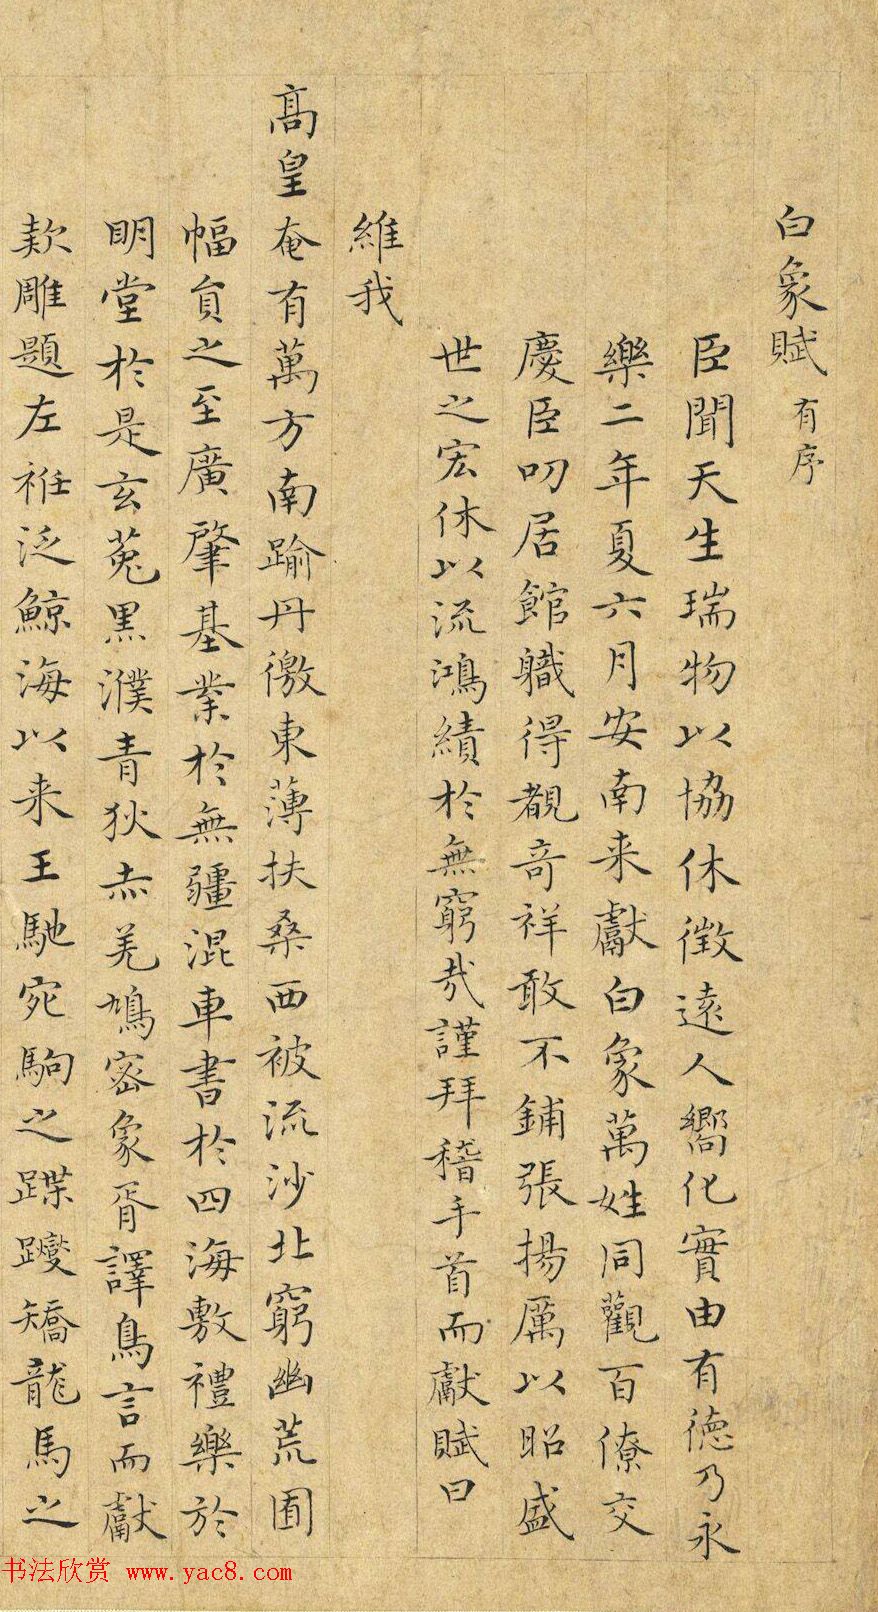 白象賦有序
臣聞天生瑞物以協休徵遠人嚮化實由有德乃永
樂二年夏六月安南来獻白象萬姓同觀百僚交
慶臣叨居館職得覩奇祥敢不鋪張揚厲以昭盛
世之宏休以流鴻績於無窮哉謹拜稽手首而獻賦曰
維我
髙皇奄有萬方南踰丹徼東薄扶桑西被流沙北窮幽荒囿
幅員之至廣肇基業於無疆混車書於四海敷禮樂於
明堂於是玄菟黒濮青狄赤羌鳩密象胥譯鳥言而獻
欵雕題左袵泛鯨海以来王馳宛駒之蹀躞矯龍馬之
书法欣赏 www.yac8.com